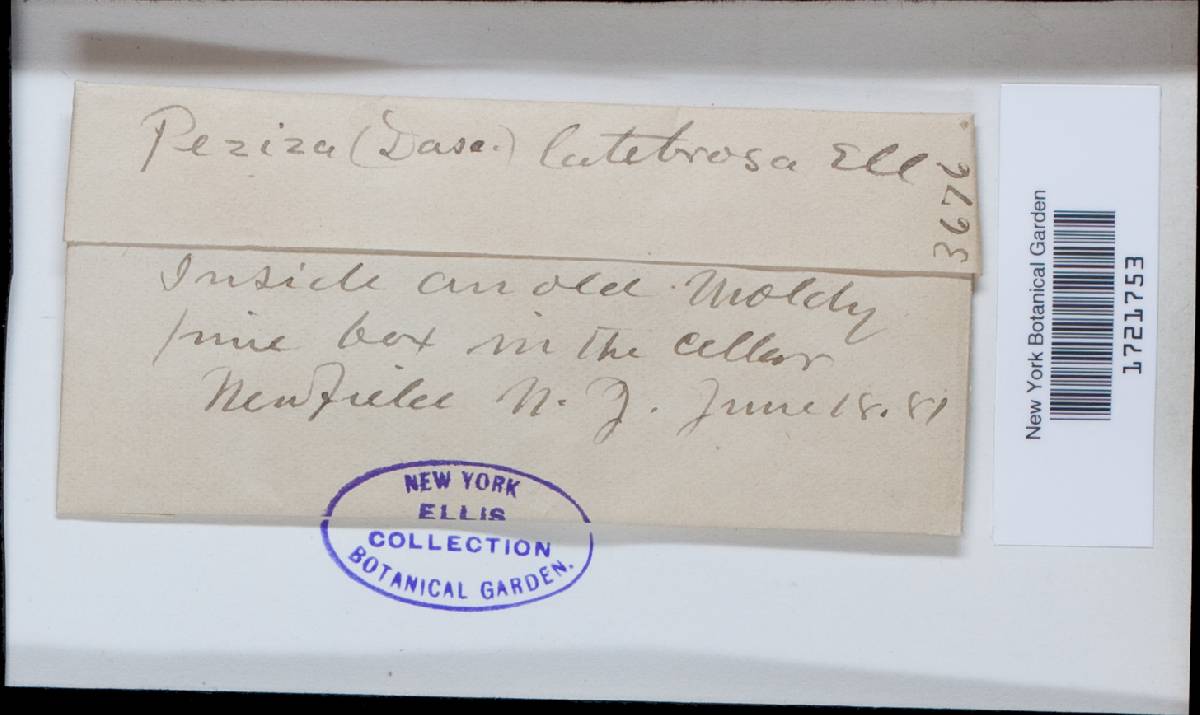 Peziza (Dasc.) latebrosa Ell
3676
Inside an old Moldy
pine box in the cellar
Newfield N. J. June 18. 81
NEW YORK
ELLIS
COLLECTION
BOTANICAL GARDEN.
New York Botanical Garden
1721753